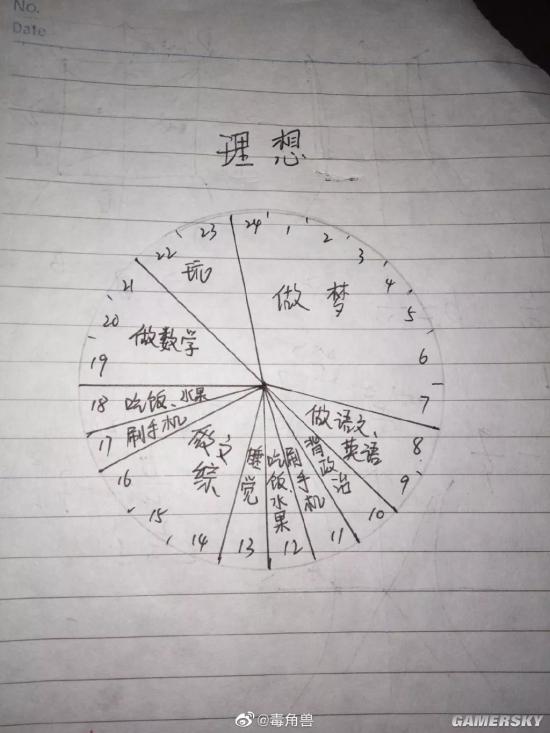 No.
Date
理想
24
1
2
3
4
5
6
7
8
9
10
11
12
13
14
15
16
17
18
19
20
21
22
23
做梦
做语文、
英语
背政治
刷手机
吃饭、水果
睡觉
文综
刷手机
吃饭、水果
做数学
玩
@毒角兽
GAMERSKY